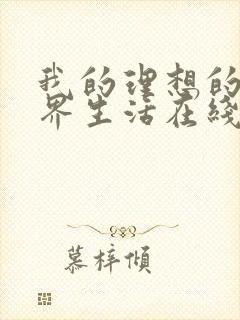 我的理想的
界生活在线
慕梓倾